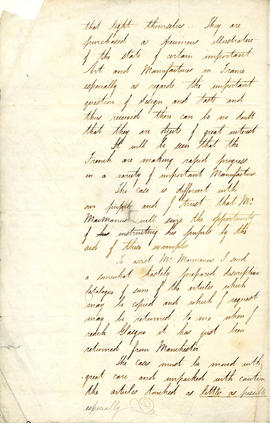 that light themselves. They are
purchased as specimens illustrative
of the state of certain important
Art and Manufactures in France
especially as regards the important
question of design and taste and
thus viewed there can be no doubt
that they are objects of great interest
It will be seen that the
French are making rapid progress
in a variety of important Manufactures
The case is different with
our pupils and I trust that Mr
MacManus will seize the opportunity
of his instructing his pupils by the
aid of these examples
To assist Mr Macmanus I send
a somewhat hastily prepared descriptive
Catalogue of some of the articles which
may be copied and which I request
may be returned to me when I
reach Glasgow it has just been
returned from Manchester.
The cases must be moved with
great care and unpacked with caution
the articles touched as little as possible
especially